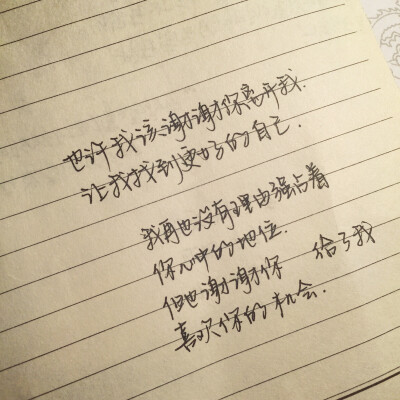 也许我该谢谢你离开我.
让我找到更好的自己.
我再也没有理由强占着
你心中的地位.
但也谢谢你 给了我
喜欢你的机会.